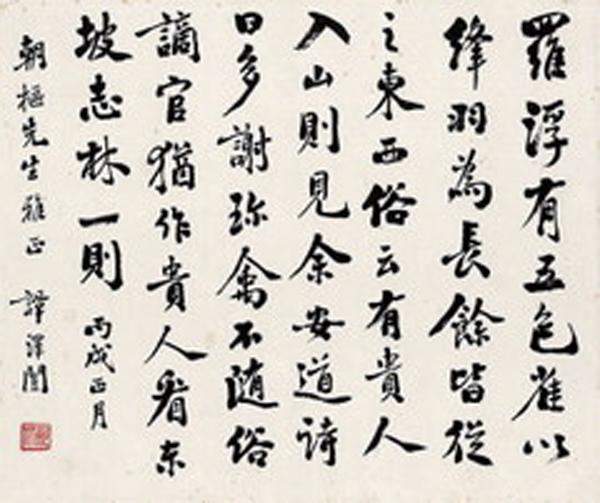 羅浮有五色雀以
絳羽為長餘皆從
之東西俗云有貴人
入山則見余安道詩
曰多謝珎禽不随俗
謫官猶作貴人看東
坡志林一則 丙戌正月
朝樞先生雅正 譚澤闓